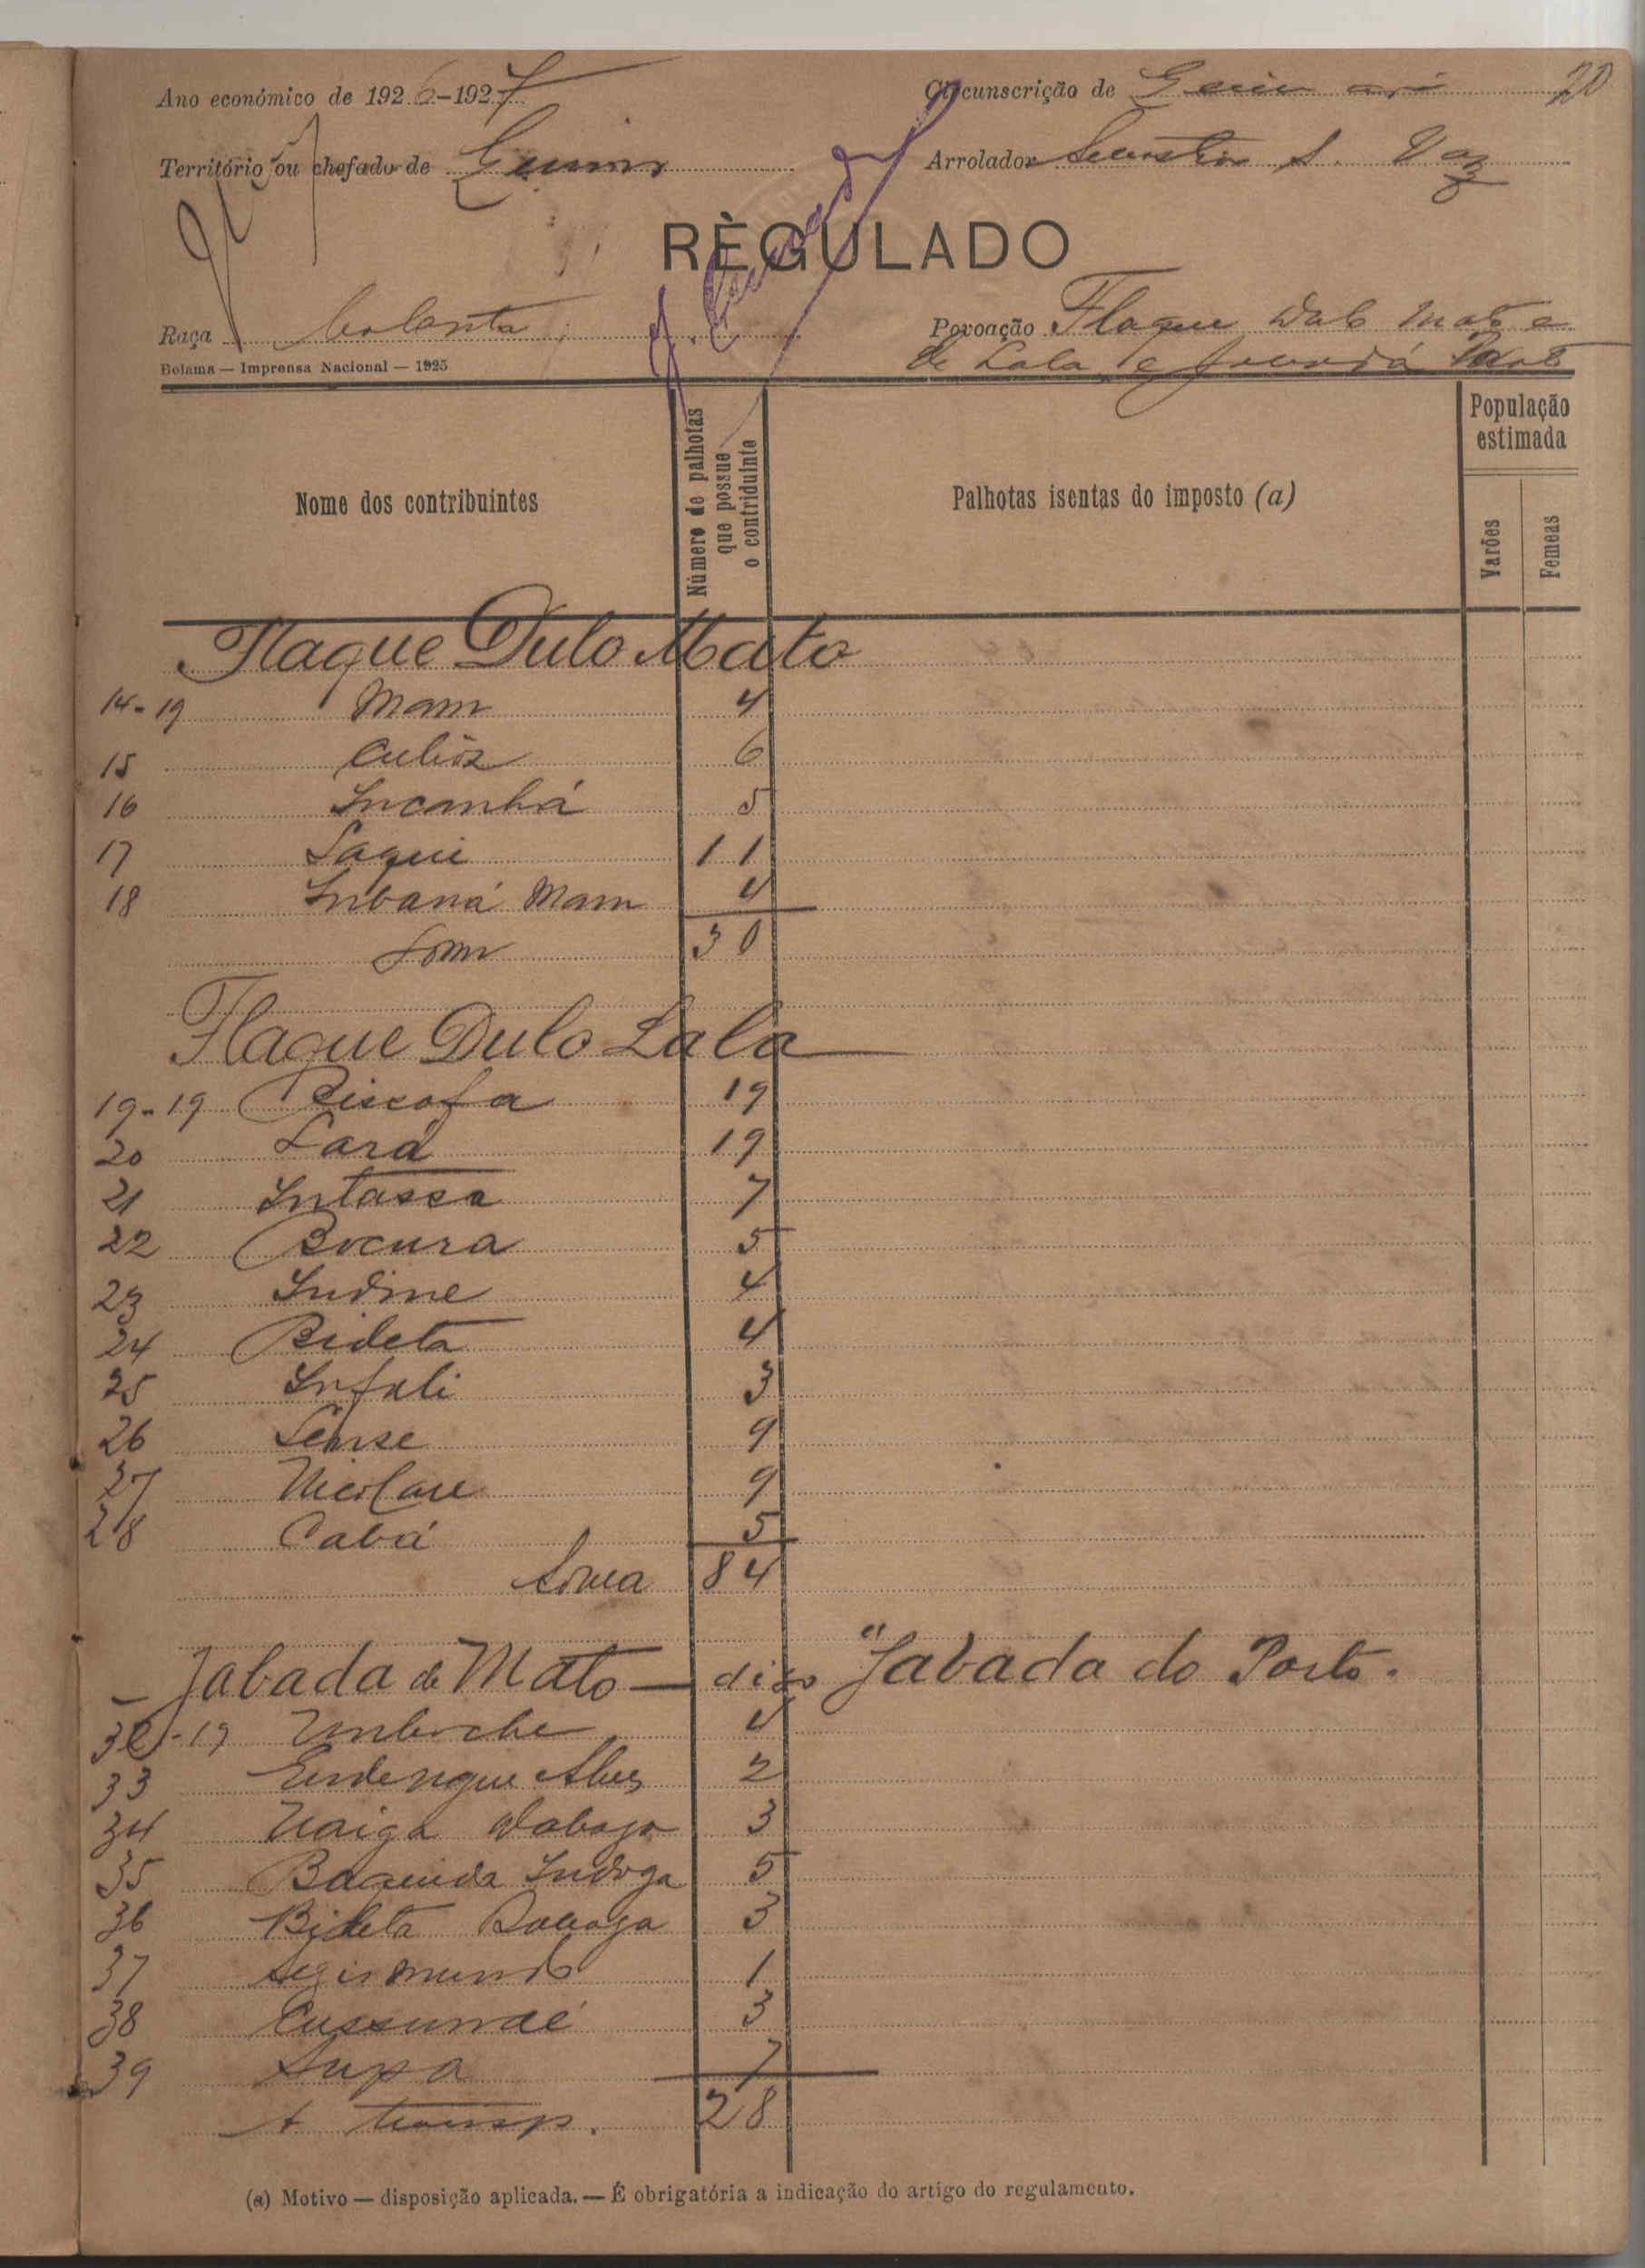 Ano económico de 1926-1927
Circunscrição de
20
Território ou chefado de
Arrolador S. Vaz
RÈGULADO
Raça Balanta
Povoação Flaque Dulo Mato e
de Lala e
Bolama — Imprensa Nacional — 1925
Nome dos contribuintes
Número de palhotas que possue o contriduinte
Palhotas isentas do imposto (a)
População estimada
Varões
Femeas
Flaque Dulo Mato
14-19 Mam 4
15 6
16 Incanhá 5
17 Saqui 11
18 Inbaná Mam 4
30
Flaque Dulo Lala
19-19 Biscofa 19
20 Lará 19
21 Intassa 7
22 Bocura 5
23 Indine 4
24 Bideta 4
25 Infali 3
26 9
27 9
28 Cabá 5
Soma 84
Jabada de Mato — digo "Jabada do Porto.
32-19 Umboche 4
33 Alves 2
34 Naiga 3
35 Indoga 5
36 Bideta 3
37 Segismundo 1
38 Cussundé 3
39 Supa 7
A transp. 28
(a) Motivo — disposição aplicada. — É obrigatória a indicação do artigo do regulamento.